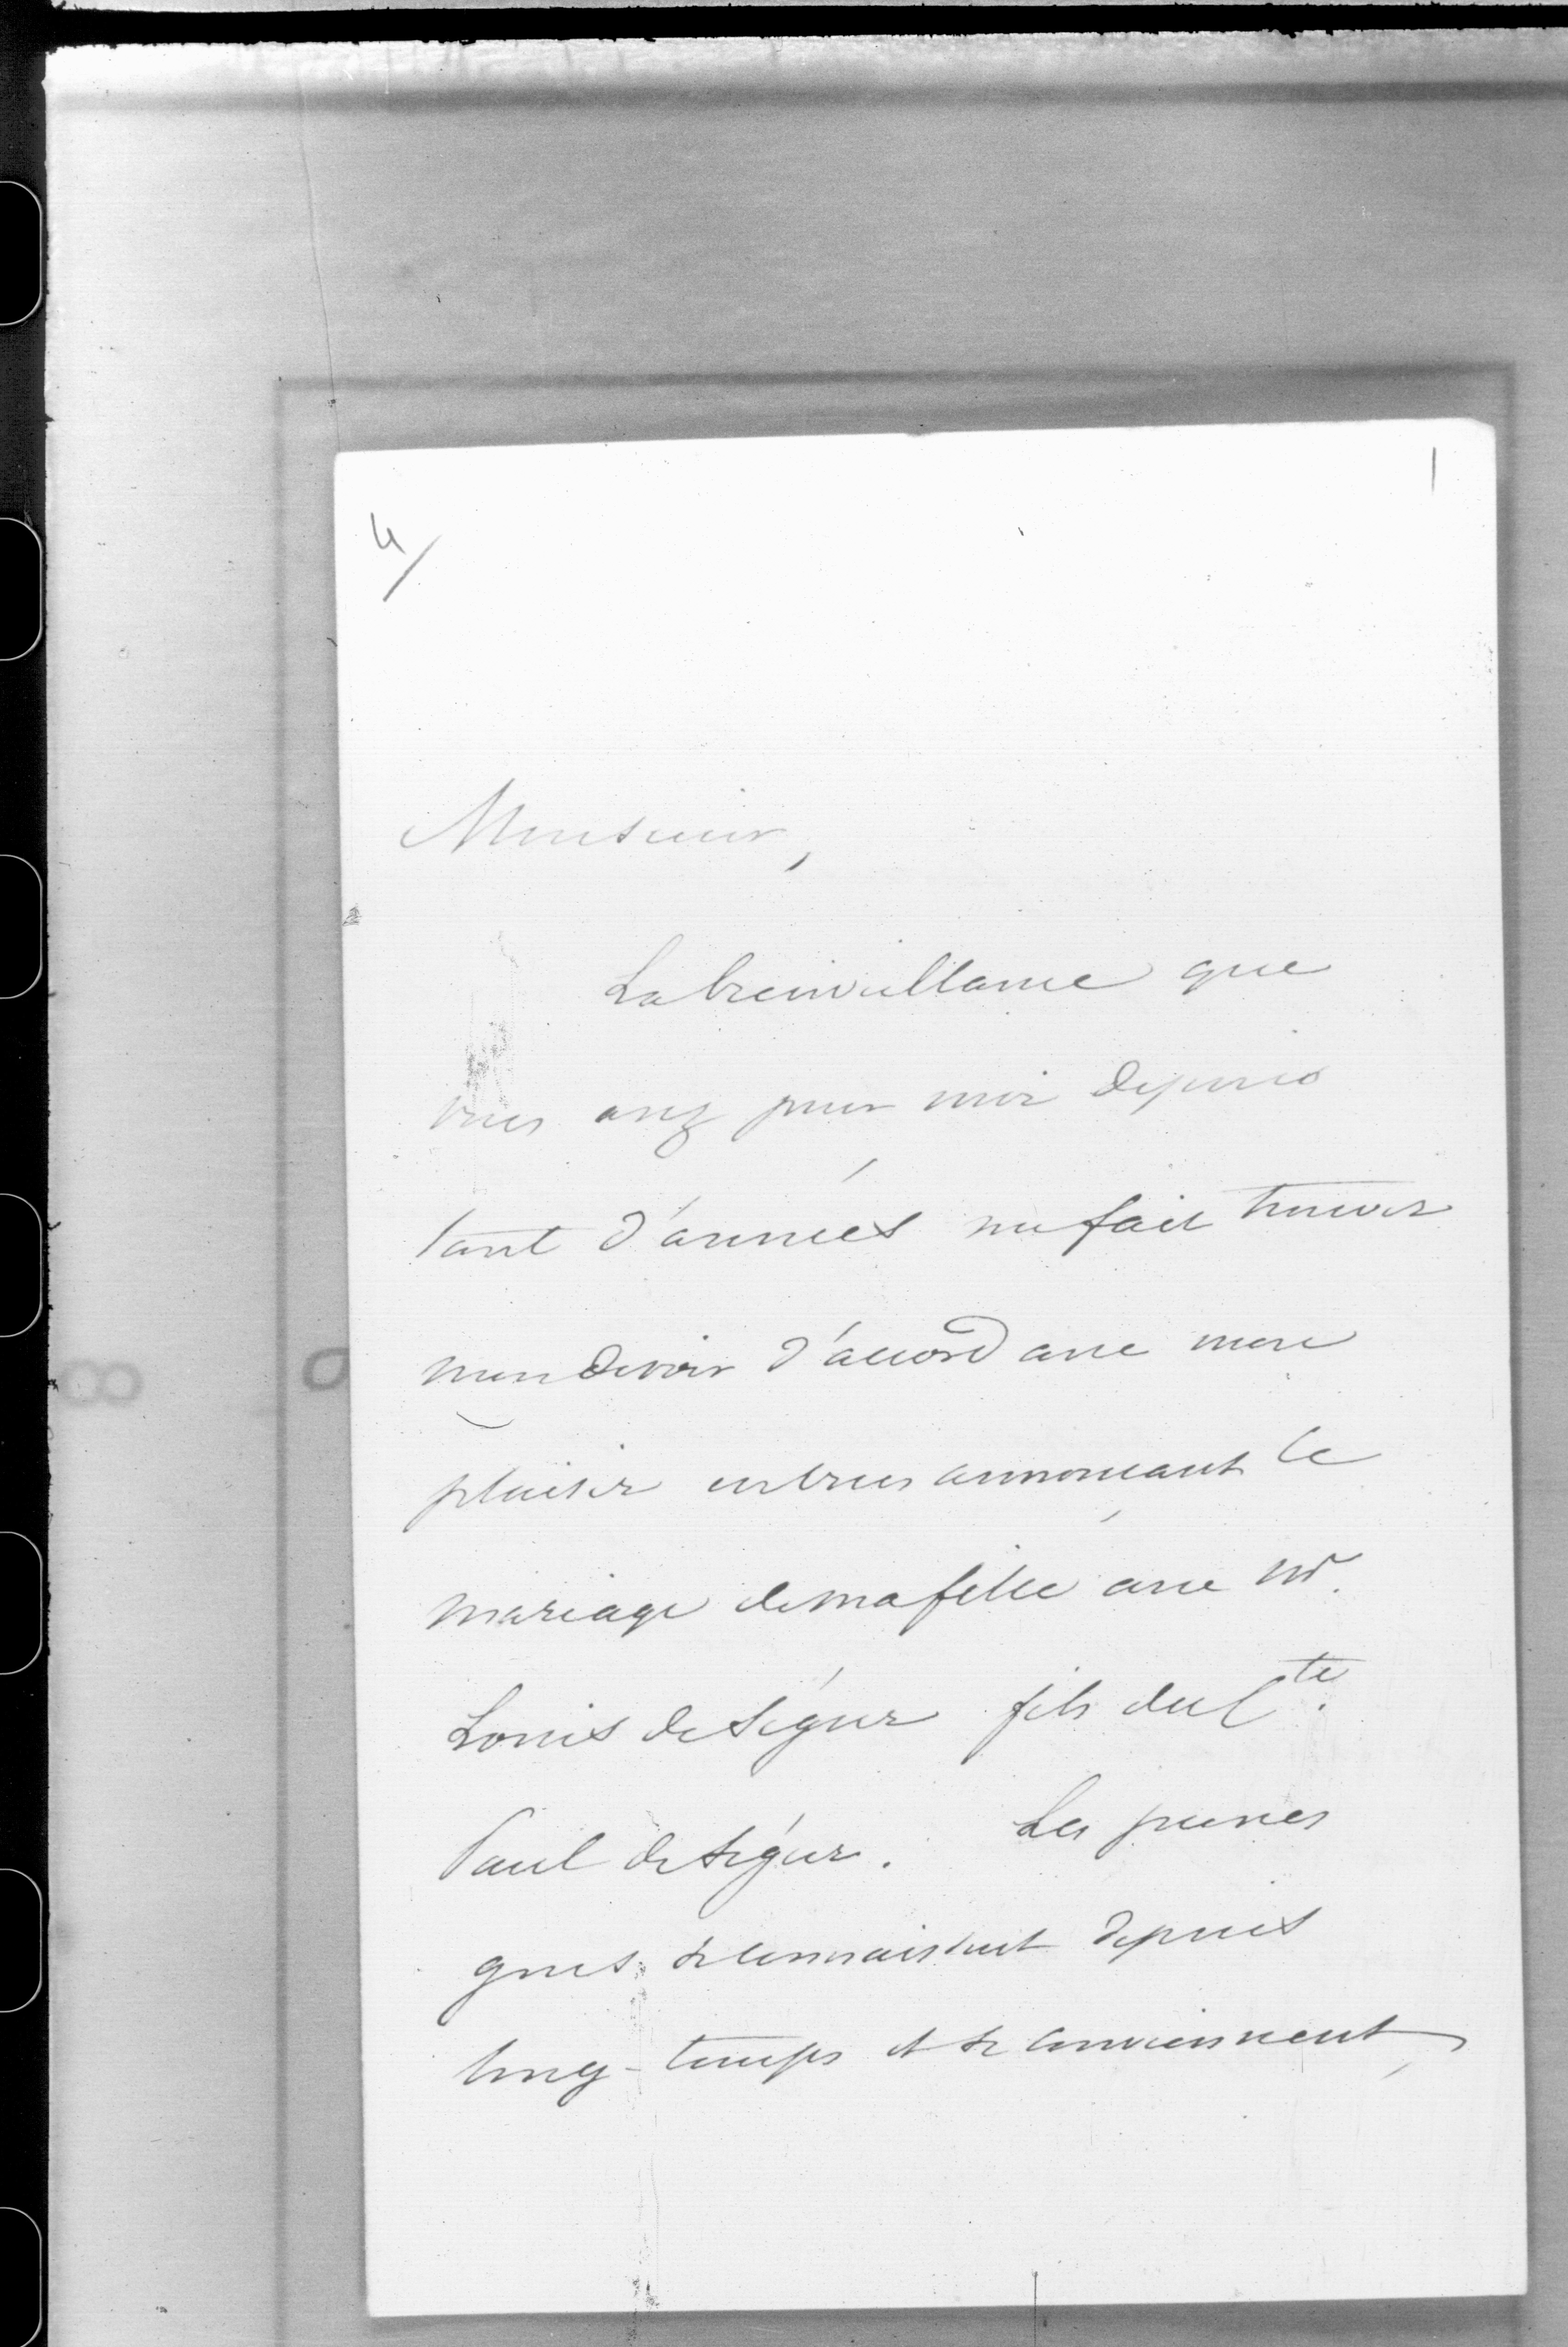 4/
1
Monsieur,
La bienveillance que
vous avez pour moi depuis
tant d'années me fait trouver
mon devoir d'accord avec mon
plaisir en vous annonçant le
mariage de ma fille avec Mr.
Louis de Ségur fils du Cte.
Paul de Ségur. Les jeunes
gens se connaissent depuis
long-temps et se conviennent,